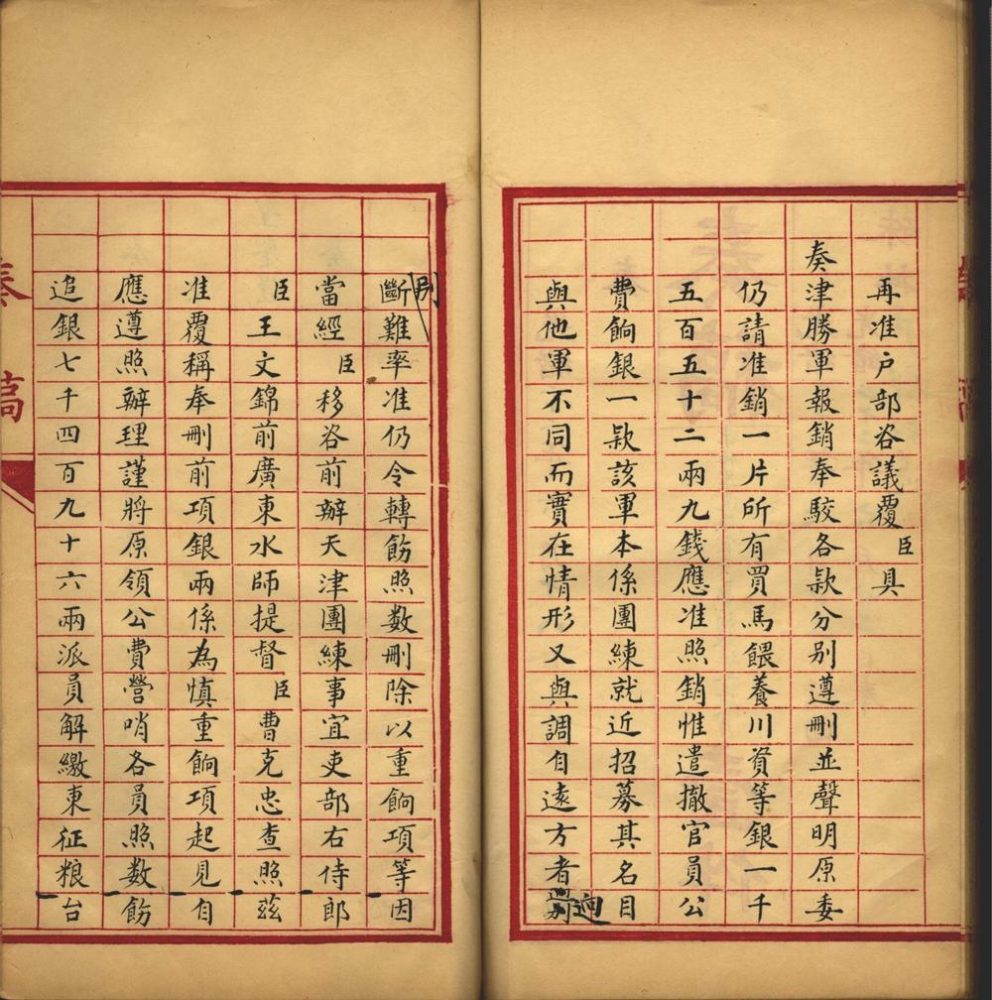 再准户部咨議覆臣具
奏津勝軍報銷奉駁各款分别遵刪並聲明原委
仍請准銷一片所有買馬餵養川資等銀一千
五百五十二兩九錢應准照銷惟遣撤官員公
費餉銀一款該軍本係團練就近招募其名目
與他軍不同而實在情形又與調自遠方者迥
别
斷難率准仍令轉飭照數刪除以重餉項等因
當經臣移咨前辦天津團練事宜吏部右侍郎
臣王文錦前廣東水師提督臣曹克忠查照茲
准覆稱奉刪前項銀兩係為慎重餉項起見自
應遵照辦理謹將原領公費營哨各員照數飭
追銀七千四百九十六兩派員解繳東征粮台
奏稿